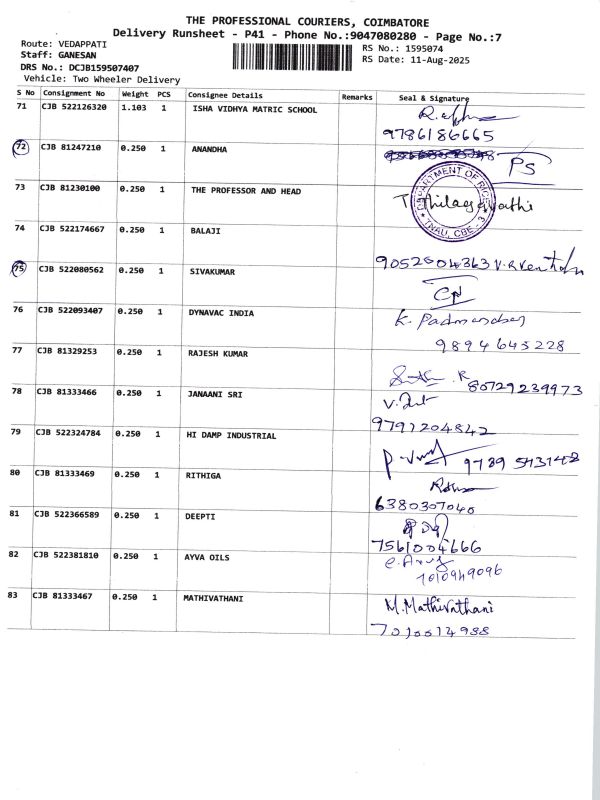 THE PROFESSIONAL COURIERS, COIMBATORE
Delivery Runsheet - P41 - Phone No.:9047080280 - Page No.:7
Route: VEDAPPATI
Staff: GANESAN
DRS No.: DCJB159507407
Vehicle: Two Wheeler Delivery
RS No.: 1595074
RS Date: 11-Aug-2025
S No Consignment No Weight PCS Consignee Details Remarks Seal & Signature
71 CJB 522126320 1.103 1 ISHA VIDHYA MATRIC SCHOOL
9786186665
72 CJB 81247210 0.250 1 ANANDHA PS
73 CJB 81230100 0.250 1 THE PROFESSOR AND HEAD
DEPARTMENT OF RICE
TNAU, CBE - 3
T. Thilagavathi
74 CJB 522174667 0.250 1 BALAJI
9052604363
75 CJB 522080562 0.250 1 SIVAKUMAR
76 CJB 522093407 0.250 1 DYNAVAC INDIA
K. Padmanaban
9894645228
77 CJB 81329253 0.250 1 RAJESH KUMAR
80729239973
78 CJB 81333466 0.250 1 JANAANI SRI
9791204842
79 CJB 522324784 0.250 1 HI DAMP INDUSTRIAL
9789543148
80 CJB 81333469 0.250 1 RITHIGA
6380307040
81 CJB 522366589 0.250 1 DEEPTI
7561004666
82 CJB 522381810 0.250 1 AYVA OILS
7010949096
83 CJB 81333467 0.250 1 MATHIVATHANI
M. Mathivathani
7010014988